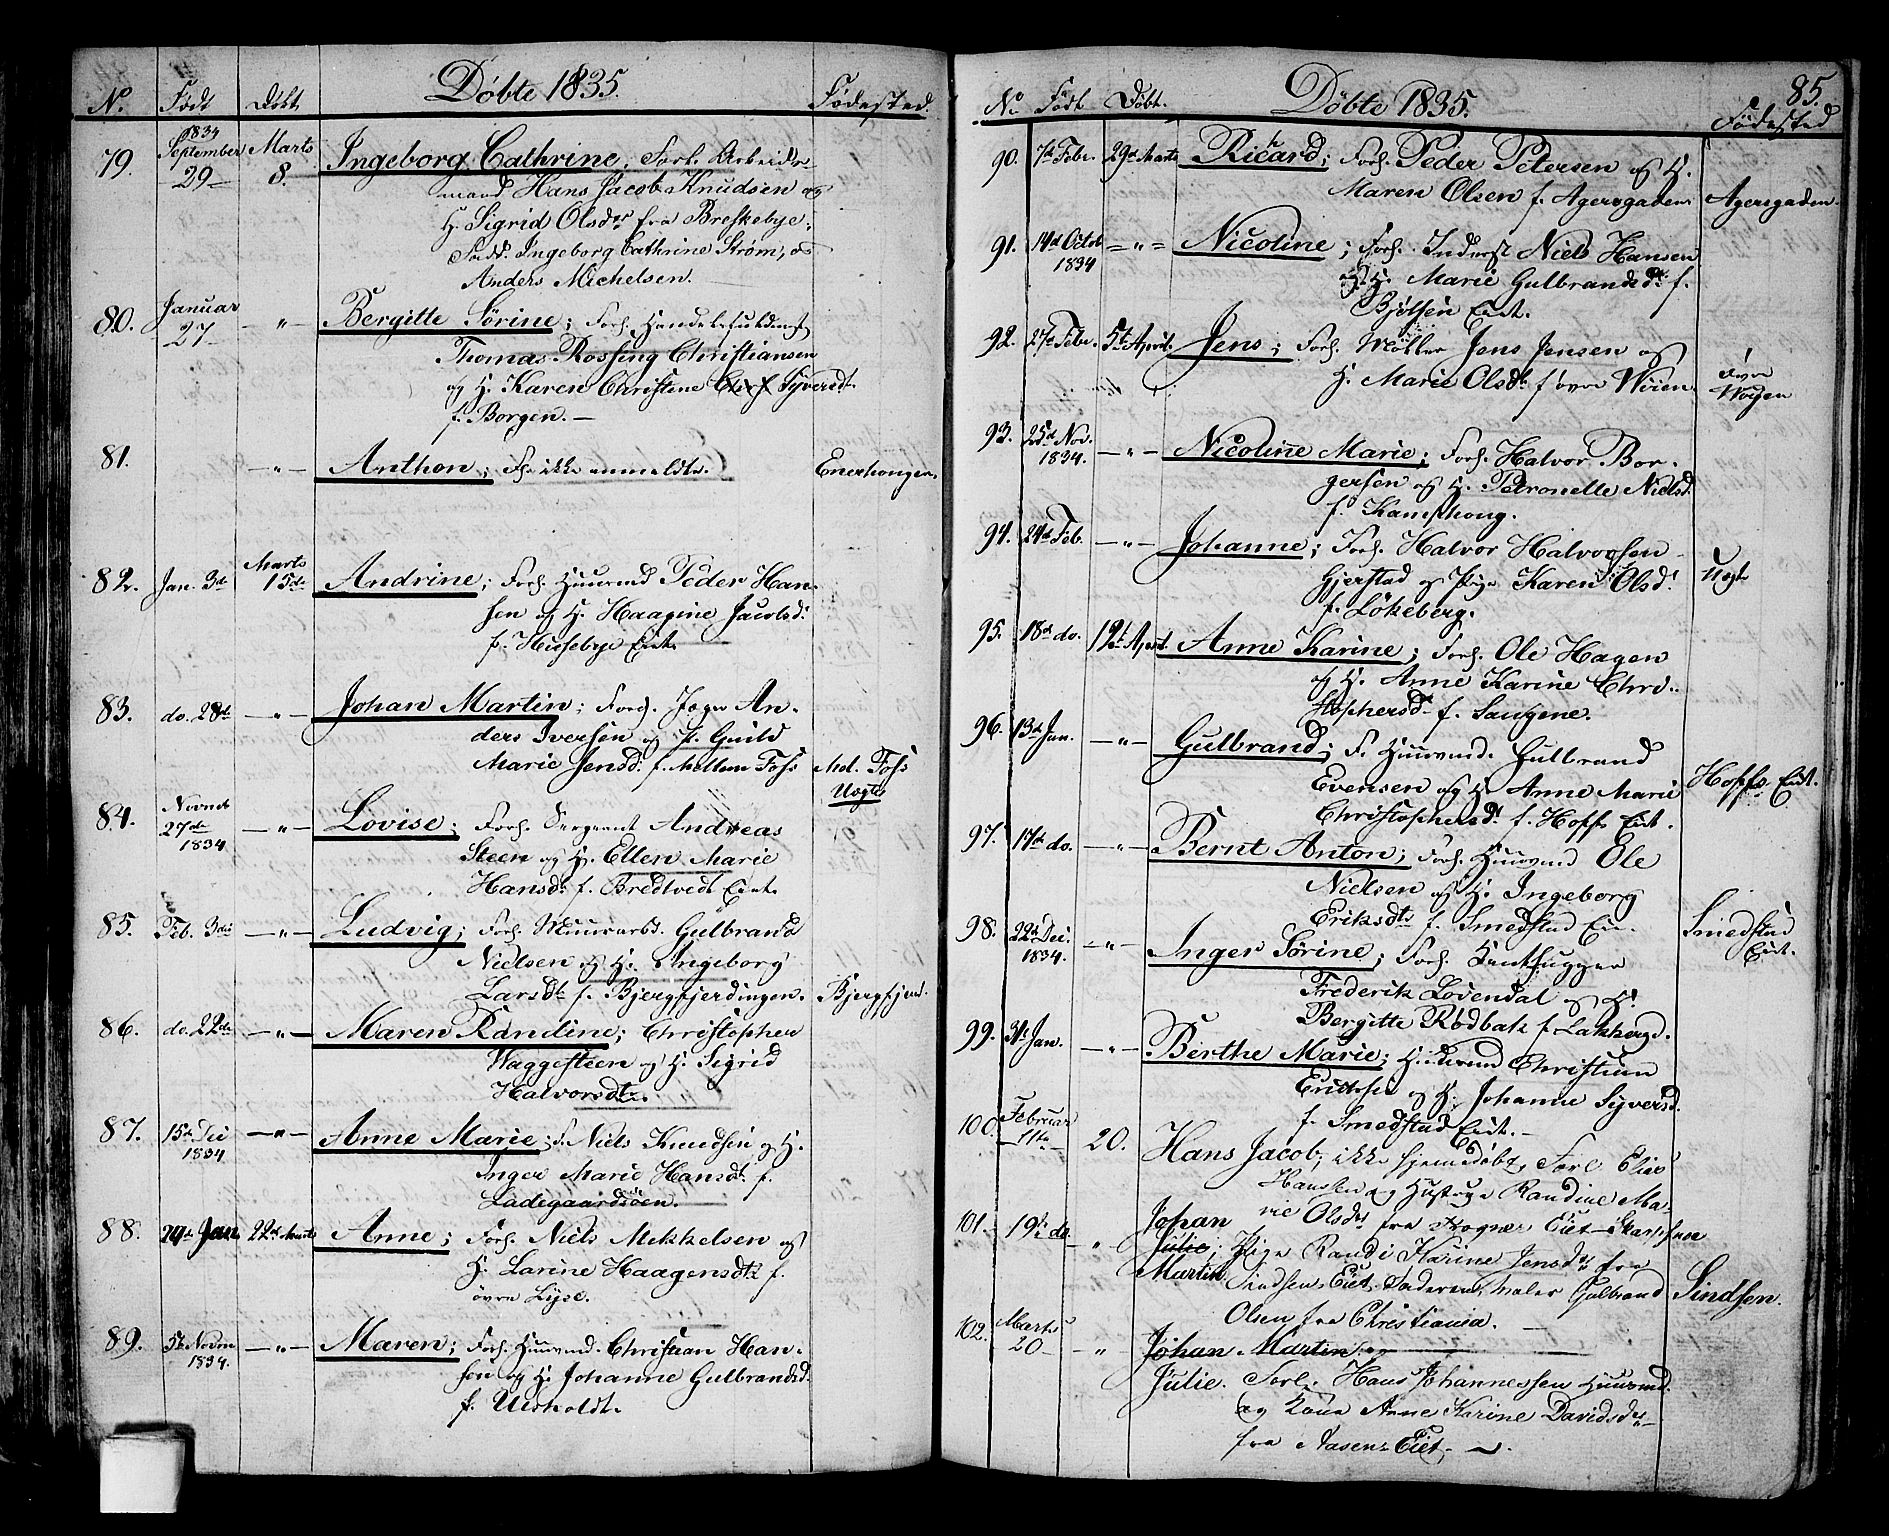 Döbte 1835.
No. Född Döbt Födested.
79. 1834 September 29 Marts 8. Ingeborg Cathrine; Forh. Arbeids-
mand Hans Jacob Knudsen og
H. Sigrid Olsdr fra Breskebye.
Fadd. Ingeborg Cathrine Strøm, og
Anders Michelsen.
80. Januar 27 — " — Bergitte Sörine; Forh.
Thomas Rossing Christiansen
og H. Karen Christine Syversdt.
f. Borgen. —
81. — " — Anthon; F. ikke anmeldte. Enerhougen.
82. Jan. 3d Marts 15de Andrine; Forh. Huusmd Peder Han-
sen og H. Haagine Jacobsd.
f. Husebye Eiet.
83. do. 28d — " — Johan Martin; Forh. An-
ders Iversen og P. Gunild
Marie Jensd. f. Mellem Fosf Ml. Fosf
Uægte
84. Novmb 27de 1834 — " — Lovise; Forh. Sergeant Andreas
Steen og H. Ellen Marie
Hansdr f. Bredtvedt Eiet.
85. Feb. 3die — " — Ludvig; Forh. Gulbrand
Nielsen og H. Ingeborg
Larsdt f. Bjergfjerdingen. Bjergfjerd.
86. do. 22de — " — Maren Randine; Christopher
Waggesteen og H. Sigrid
Halvorsdtr.
87. 15de Dec 1834 — " — Anne Marie; F. Niels Knudsen og H.
Inger Marie Hansdt. f.
Ladegaardsöen.
88. 24de Jan. 22de Marts Anne; Forh. Niels Mekkelsen og
H. Larine Haagensdtr f.
övre Lyse.
89. 5te Novm 1834. — " — Maren; Forh. Huusmd. Christian Han-
sen og H. Johanne Gulbrandsd.
f. Ulsholdt.
85.
No Född Döbt. Döbte 1835. Födested
90. 7de Febr. 29de Marts Richard; Forh. Peder Petersen og H.
Maren Olsen f. Agersgaden. Agersgaden.
91. 14d Octob 1834 = " = Nicoline; Forh. Inderst Niels Hansen
og H. Marie Gulbrandsdr. f.
Bjölsen Eiet.
92. 27de Febr. 5te April. Jens; Forh. Möller Jens Jensen og
H. Marie Olsdr. f. övre Wöien. Övre
Wöyen
93. 25d Nov. 1834. — " — Nicoline Marie; Forh. Halvor Bor-
gersen og H. Petronelle Nielsd.
f. Kampehoug.
94. 24d Feb. — " — Johanne; Forh. Halvor Halvorsen
Gjerstad og Pige Karen Olsd. Uægte
f. Lökeberg.
95. 18de do. 19de April. Anne Karine; Forh. Ole Hagen
og H. Anne Karine Chri-
stophersd. f. Saugene.
96. 13d Jan. — " — Gulbrand; F. Huusmd. Gulbrand
Evensen og H. Anne Marie Hoffs Eiet.
Christophersd. f. Hoffs Eiet.
97. 17de do. — " — Bernt Anton; Forh. Huusmd Ole
Nielsen og H. Ingeborg
Eriksdtr f. Smedstad Eie. Smedstad
Eiet.
98. 22de Dec. 1834. — " — Inger Sörine; Forh.
Frederik Lovendal og H.
Bergitte Rödbak f. Lakkeg.
99. 31te Jan. — " — Berthe Marie; Christian
Ericksen og H. Johanne Syversd.
f. Smedstad Eiet. —
100. Februar 11te 20. Hans Jacob, ikke hjemmedöbt, Forl. Elias
Hansen og Hustrue Randine Ma-
rie Olsdr fra Frogner Eiet
101. 19de do. — " Johan
Julie; Pige Randi Karine Jensdr fra
Martin Sindsen Eiet. Maler Gulbrand Sindsen.
Olsen fra Christiania. —
102. Marts 20 — " Johan Martin
Julie. Forl. Hans Johannessen Huusmd.
og Kone Anne Karine Davidsdr
fra Aasens Eiet. —